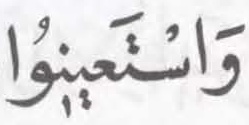 وَاسْتَعِينُوا